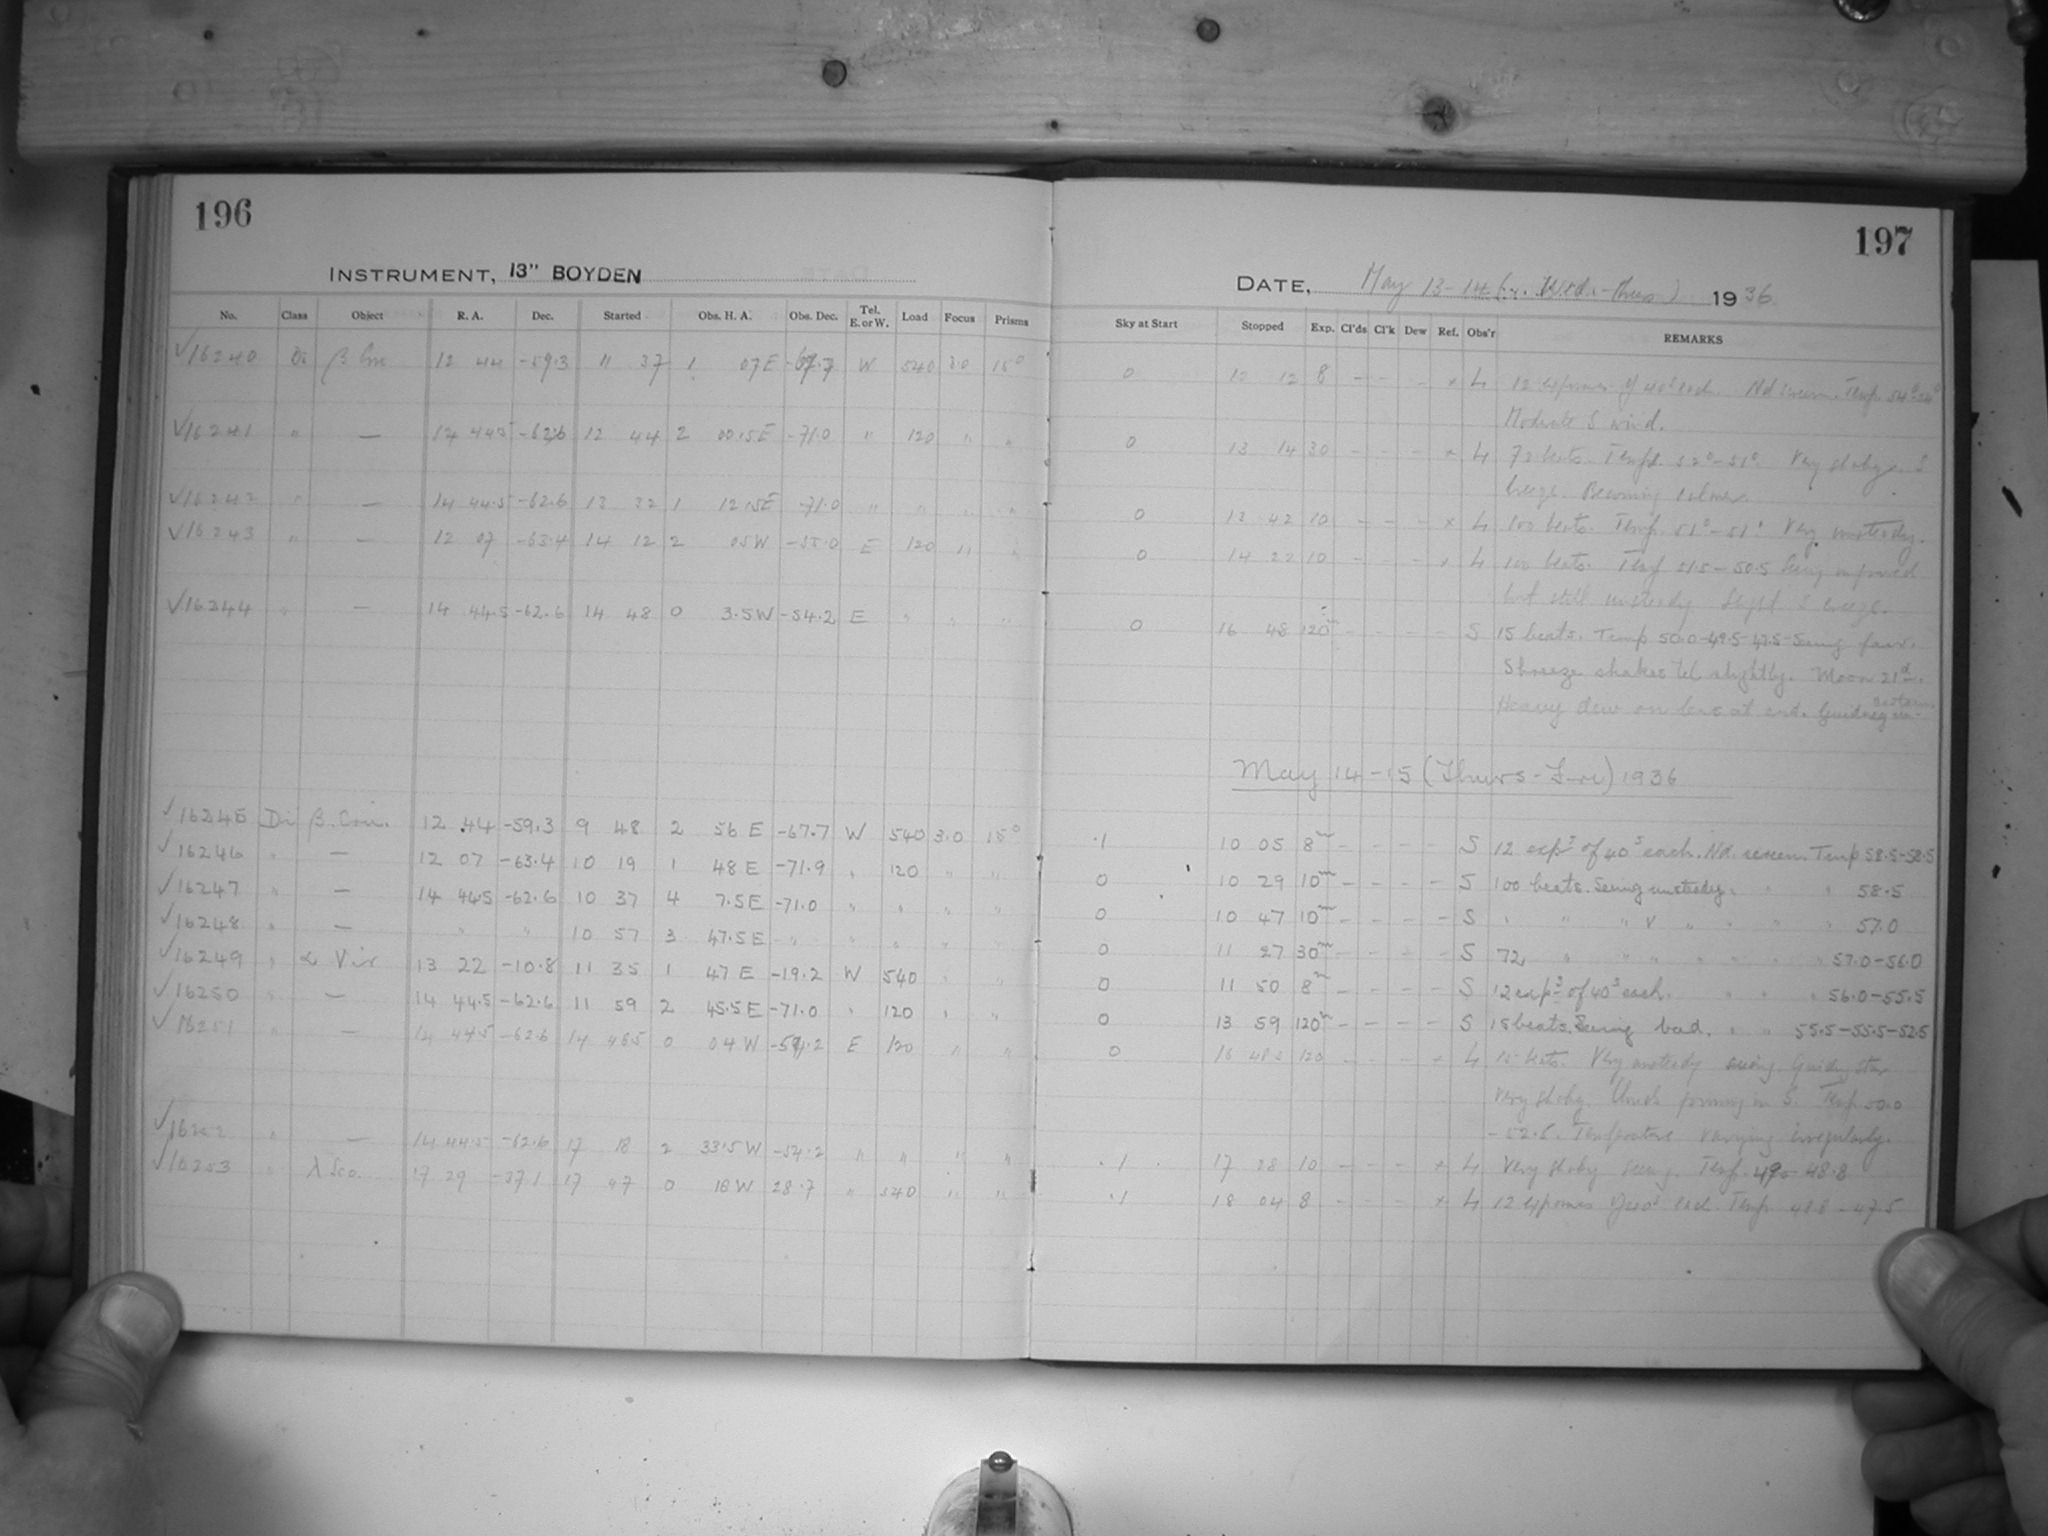 196
197
INSTRUMENT, 13" BOYDEN
DATE, May 13-14 Wed.-Thurs) 1936
No. Class Object R. A. Dec. Started Obs. H. A. Obs. Dec. Tel. E. or W. Load Focus Prisms Sky at Start Stopped Exp. Cl'ds Cl'k Dew Ref. Obs'r REMARKS
✓16240 Di β Cru 12 44 -59.3 11 37 1 07 E 67.7 W 540 3.0 15° 0 12 12 8 - - - × L 12 exposures of 40s each. Nd screen. Temp. 54°
Moderate S wind.
✓16241 " — 14 44.5 -62.6 12 44 2 00.5 E -71.0 " 120 " " 0 13 14 30 - - - × L 72 beats. Temp. 52°-51°. Very shaky. S
breeze. Becoming calmer.
✓16242 " — 14 44.5 -62.6 13 32 1 12.5 E -71.0 " " " " 0 13 42 10 - - - × L 100 beats. Temp. 51°-51°. Very unsteady.
✓16243 " — 12 07 -63.4 14 12 2 05 W -55.0 E 120 " " 0 14 22 10 - - - × L 100 beats. Temp 51.5-50.5 Seeing improved
but still unsteady Slight S breeze.
✓16244 " — 14 44.5 -62.6 14 48 0 3.5 W -54.2 E " " " 0 16 48 120m - - - - S 15 beats. Temp 50.0-49.5-47.5-Seeing fair.
S breeze shakes tel slightly. Moon 21d.
Heavy dew on lens at end. Guiding un-
certain.
May 14-15 (Thurs-Fri) 1936
✓16245 Di β Cru. 12 44 -59.3 9 48 2 56 E -67.7 W 540 3.0 15° .1 10 05 8m - - - - S 12 exps of 40s each. Nd. screen. Temp 58.5-58.5
✓16246 " — 12 07 -63.4 10 19 1 48 E -71.9 " 120 " " 0 10 29 10m - - - - S 100 beats. Seeing unsteady. " " 58.5
✓16247 " — 14 44.5 -62.6 10 37 4 7.5 E -71.0 " " " " 0 10 47 10m - - - - S " " " v " " " 57.0
✓16248 " — " " 10 57 3 47.5 E " " " " " 0 11 27 30m - - - - S 72 " " " " " " 57.0-56.0
✓16249 " α Vir 13 22 -10.8 11 35 1 47 E -19.2 W 540 " " 0 11 50 8m - - - - S 12 exps of 40s each. " " " 56.0-55.5
✓16250 " — 14 44.5 -62.6 11 59 2 45.5 E -71.0 " 120 " " 0 13 59 120m - - - - S 15 beats. Seeing bad. " " 55.5-55.5-52.5
✓16251 " — 14 44.5 -62.6 14 48.5 0 04 W -54.2 E 120 " " 0 16 48.5 120 - - - × L 15 beats. Very unsteady seeing. Guiding star
very shaky. Clouds forming in S. Temp. 50.0
-52.5. Temperature varying irregularly.
✓16252 " — 14 44.5 -62.6 17 18 2 33.5 W -54.2 " " " " .1 17 28 10 - - - × L Very shaky seeing. Temp. 49 - 48.8
✓16253 " λ Sco. 17 29 -37.1 17 47 0 18 W 28.7 " 540 " " .1 18 04 8 - - - × L 12 exposures of 40s each. Temp. 48.8-47.5